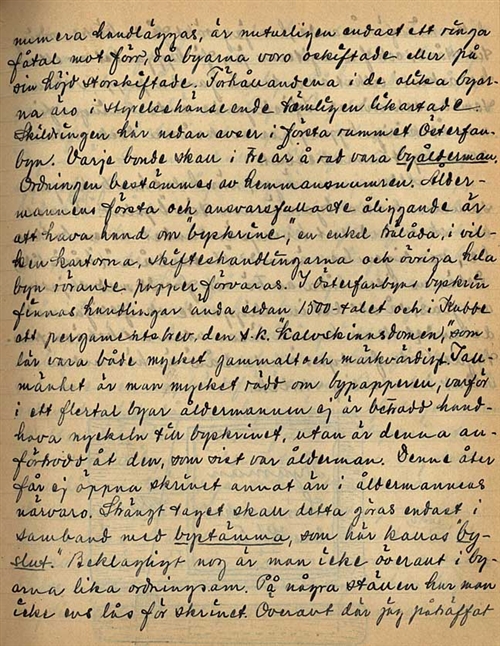 numera handläggas, är naturligen endast ett ringa
fåtal mot förr, då byarna voro oskiftade eller på
sin höjd storskiftade. Förhållandena i de olika byar-
na äro i styrelsehänseende tämligen likartade.
Skildringen här nedan avser i första rummet Österfan-
byn. Varje bonde skall i tre år å rad vara byålderman.
Ordningen bestämmes av hemmansnumren. Ålder-
mannens första och ansvarsfullaste åliggande är
att hava hand om "byskrinet", en enkel trälåda, i vil-
ken kartorna, skifteshandlingarna och övriga hela
byn rörande papper förvaras. I Österfanbyns byskrin
finnas handlingar ända sedan 1500-talet och i Kubbe
ett pergamentsbrev, den s.k. "kalvskinnsdomen", som
lär vara både mycket gammalt och märkvärdigt. I all-
mänhet är man mycket rädd om bypapperen, varför
i ett flertal byar åldermannen ej är betrodd hand-
hava nyckeln till byskrinet, utan är denna an-
förtrodd åt den, som sist var ålderman. Denne åter
får ej öppna skrinet annat än i åldermannens
närvaro. Strängt taget skall detta göras endast i
samband med bystämma, som här kallas "by-
slut." Beklagligt nog är man icke överallt i by-
arna lika ordningsam. På några ställen har man
icke ens lås för skrinet. Överallt där jag påträffat